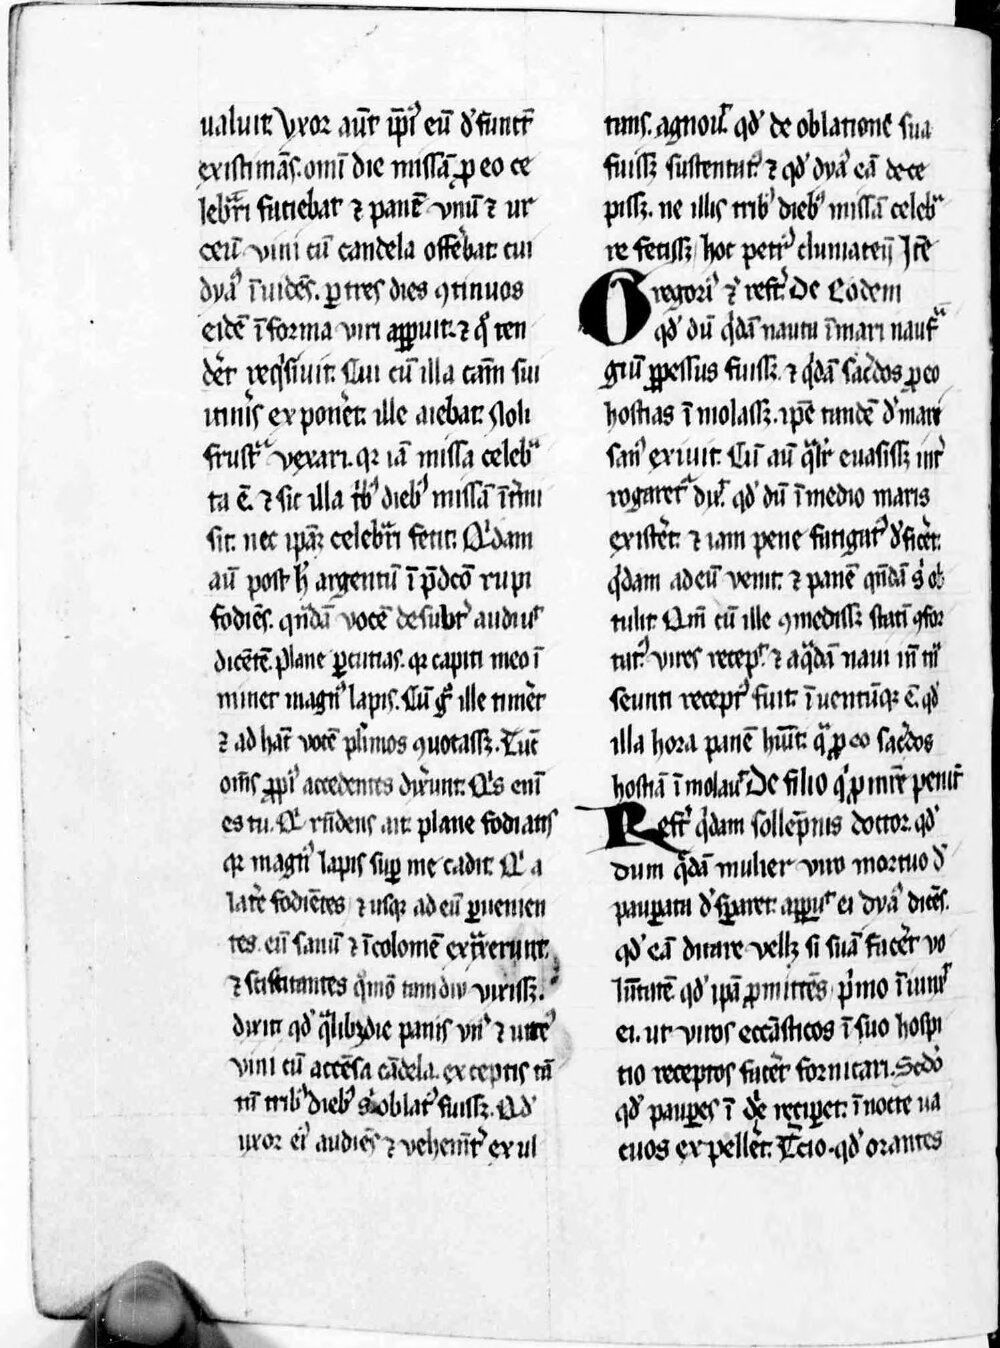 ualuit. Vxor aut̄ ip̄iꝰ eū dꝰfunct̄
existimās. omī die missā ꝓ eo ce
lebr̄ri faciebat ⁊ panē vnū ⁊ ur
ceū vini cū candela offerebat. cui
dyaꝰ īuidēs. ꝑ tres dies ꝯtinuos
eidē ī forma viri apparuit. ⁊ qͦ ten
dēt reqͥsiuit. Cui cū illa cām sui
itinīs exponet. ille aiebat. Noli
frustͣ vexari. qꝛ iā missa celebͣ
ta ē. ⁊ sic illa tͥbꝰ diebꝰ missā īt̄mi
sit. nec ipāꝫ celebrͣri fecit. Qͥdam
aū post h̄ argentū ī p̄dc̄o rupi
fodiēs. qn̄dā vocē desubtꝰ audiuͭ
dicētē. plane ꝑcutias. qꝛ capiti meo ī
minet magnꝰ lapis. Cū gͦ ille timēt
⁊ ad hāc vocē pl̄imos ꝯuocassꝫ. Tūc
oms ꝓpiꝰ accedentes dixert. Qͥs enī
es tu. Qͥ rn̄dens ait. plane fodiatis
qꝛ magnꝰ lapis suꝑ me cadit. Qͥ a
latēe fodiētes ⁊ usqꝫ ad eū ꝑuenien
tes. eū sanū ⁊ īcolomē extͣxerunt.
⁊ scisitantes qͦmo tam diu vixissꝫ.
dixit qd̓ qͣlibꝫ die panis vnꝰ ⁊ urceꝰ
vini cū accēsa cādela. exceptis tā
tū tribꝰ diebꝰ s̓ oblatꝰ fuissꝫ. Qd̓
uxor eiꝰ audiēs ⁊ vehemt̄ exul
tans. agnouͭ. qd̓ de oblatione sua
fuissꝫ sustentatꝰ. ⁊ qd̓ dyaꝰ eā dece
pissꝫ. ne illis tribꝰ diebꝰ missā celebͣ
re fecissꝫ. hoc petrꝰ cluniaceñ Jtē
Gregoriꝰ ⁊ refert. De Eodem
qd̓ dū qͥdā nauta ī mari naufͣ
giū ꝑpessus fuissꝫ. ⁊ qͥdā sac̄dos ꝓ eo
hostias īmolassꝫ. ipe tandē dꝰ mari
sanꝰ exiuit. Cū aū qͣlr̄ euasissꝫ int̄
rogaretͬ dixͭ. qd̓ dū ī medio maris
existēt. ⁊ iam pene fatigatꝰ dꝰficēt.
qͥdam ad eū venit. ⁊ panē qn̄dā sͥ ob
tulit. Qm̄ cū ille ꝯmedissꝫ statī ꝯfor
tatꝰ. vires recepͭ. ⁊ a qͣdā naui iñ tͣn
seunti receptꝰ fuit. īuentūqꝫ ē. qd̓
illa hora panē hūit. qͣ ꝓ eo sac̄dos
hostiā īmolauͭ. De filio qͥ ꝓ mr̄e penit̄
Refert qͥdam sollēpnis doctor. qd̓
dum qͣdā mulier viro mortuo dꝰ
pauꝑtate dꝰsꝑaret. apparͭ ei dyaꝰ dicēs.
qd̓ eā ditare vellꝫ si suā facēt vo
lūtatē. qd̓ ipā ꝓmittēs. pͥmo īiunxͭ
ei. ut viros ecc̄asticos ī suo hospi
tio receptos facēt fornicari. Scd̓o
qd̓ pauꝑes ī die recipet. ī nocte ua
cuos expellēt. T̄cio. qd̓ orantes